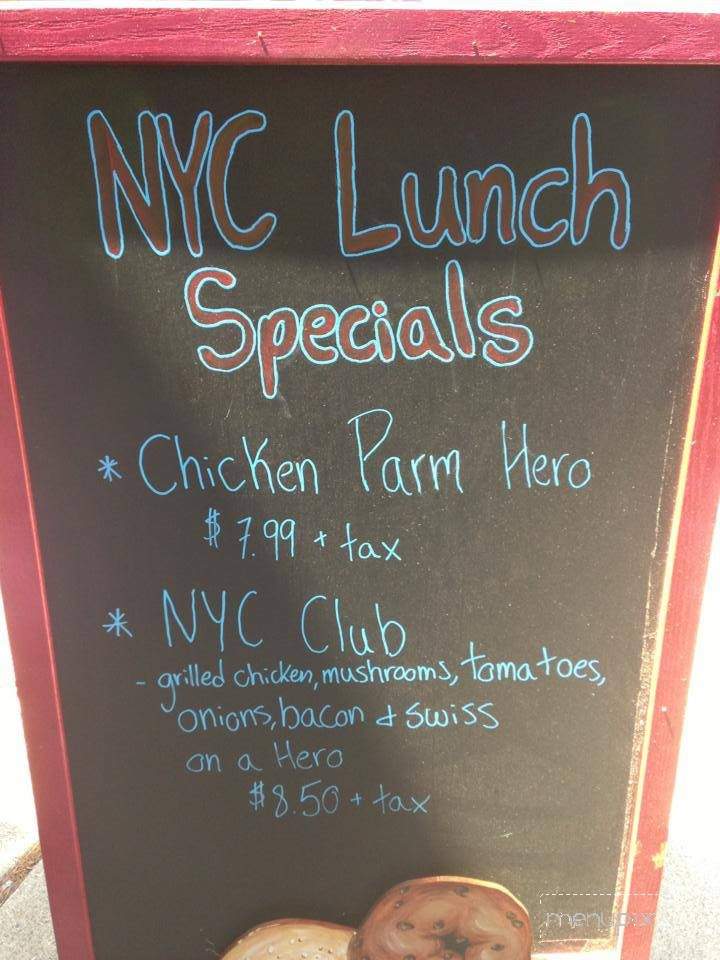 NYC Lunch
Specials
* Chicken Parm Hero
$7.99 + tax
* NYC Club
- grilled chicken, mushrooms, tomatoes,
onions, bacon & swiss
on a Hero
$8.50 + tax
menupix